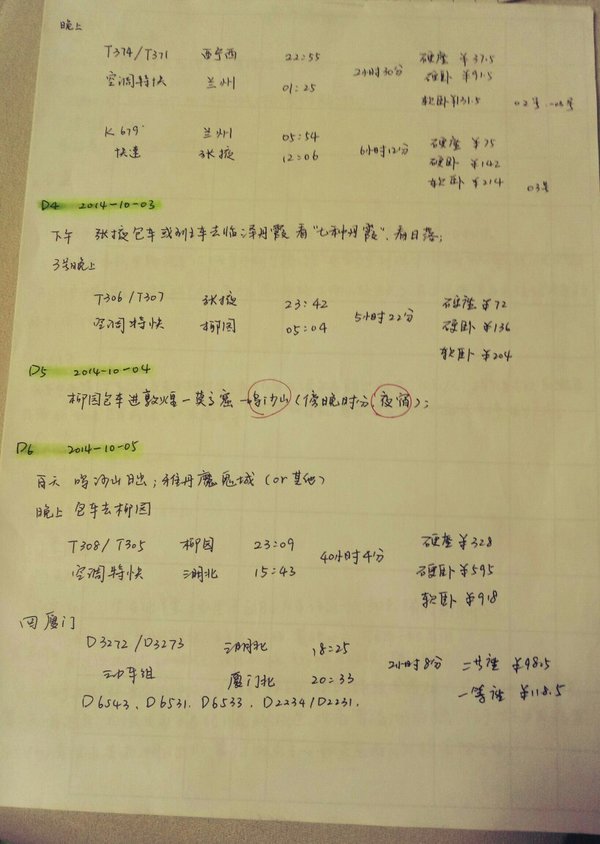 晚上
T374/T371 西宁西 22:55 2小时30分 硬座 ¥37.5
空调特快 兰州 01:25 硬卧 ¥91.5
软卧 ¥131.5 02号-03号
K679 兰州 05:54 6小时12分 硬座 ¥75
快速 张掖 12:06 硬卧 ¥142
软卧 ¥214 03号
D4 2014-10-03
下午 张掖包车或班车去临泽丹霞 看"七彩丹霞"、看日落;
3号晚上
T306/T307 张掖 23:42 5小时22分 硬座 ¥72
空调特快 柳园 05:04 硬卧 ¥136
软卧 ¥204
D5 2014-10-04
柳园包车进敦煌—莫高窟→鸣沙山(傍晚时分,夜宿);
D6 2014-10-05
白天 鸣沙山日出;雅丹魔鬼城(or 其他)
晚上 包车去柳园
T308/T305 柳园 23:09 40小时4分 硬座 ¥328
空调特快 15:43 硬卧 ¥595
软卧 ¥918
回厦门
D3272/D3273 18:25 2小时8分 二等座 ¥98.5
动车组 厦门北 20:33 一等座 ¥118.5
D6543、D6531、D6533、D2234/D2231.